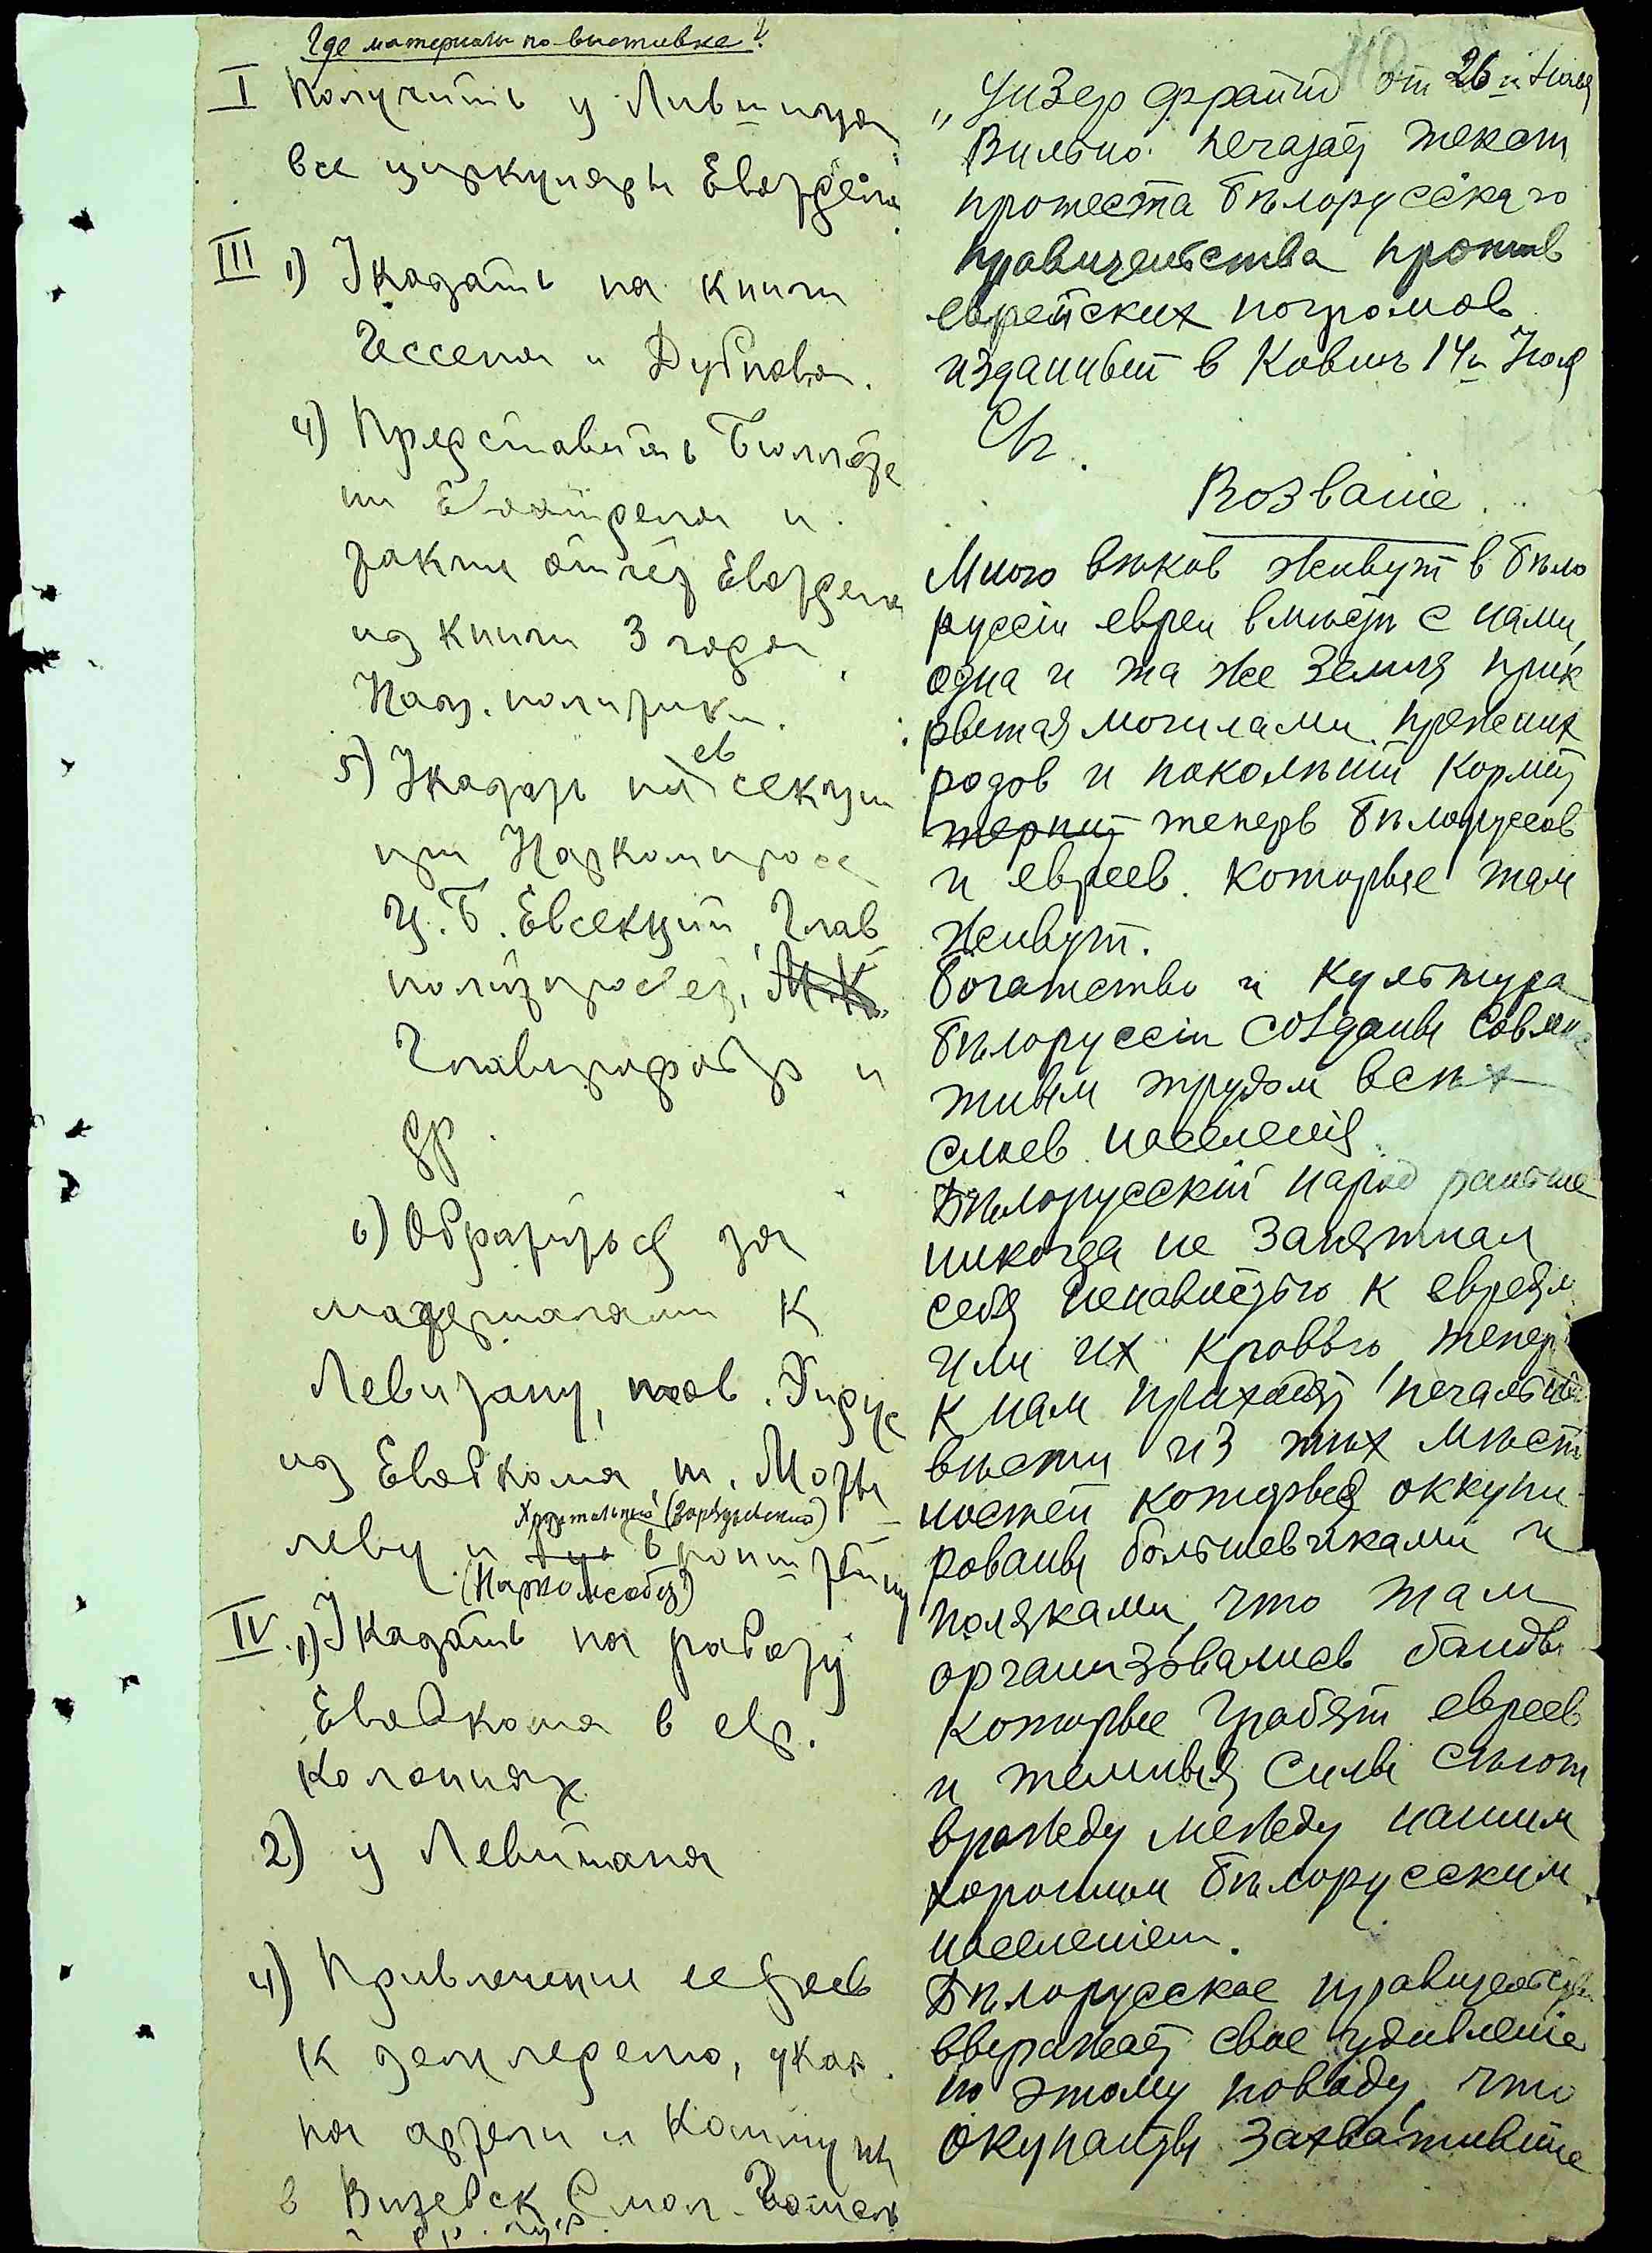 Где материалы по выставке?
I Получить у Лившица
все циркуляры Евотдела
III 1) Указать на книги
Гессена и Дубнова.
4) Представить Бюллете
ни Евотдела и
факти отчёт Евотдела
из книги 3 года
Нац. политики.
5) Указать на ев секции
при Наркомпросе
Ц.Б. Евсекций, Глав
политпросвет, М.К.
Главпрофобр и
др.
6) Обратиться за
материалами к
Левитану, тов.
из Евобкома, т.
леву и
Хрустальной
(Наркомсобез)
IV. 1) Указать на работу
Евобкома в евр.
колониях
2) у Левитана
4) Привлечении евреев
к земледелию, указ.
на артели и коммуны
в Витебск, Смол. Гомель
„Унзер Фрайнд от 26 и Июля
Вильно. печатает текст
протеста бѣлорусскаго
правительства против
еврейских погромов
изданный в Ковнѣ 14 и Июля
Возваніе
Много вѣков живут в бѣло
руссіи евреи вмѣстѣ с нами,
одна и та же земля прик
рытая могилами прежних
родов и поколѣній кормит
терпит теперь бѣлоруссов
и евреев. которые там
живут.
богатство и культура
бѣлоруссіи созданы совмѣс
тным трудом всѣх
слоев населенія.
Бѣлорусскій народ раньше
никогда не запятнал
себя ненавистью к евреям
или их кровью, теперь
к нам приходят печальные
вѣсти из тѣх мѣст
ностей которыя оккупи
рованы большевиками и
поляками, что там
организовались банды
которые грабят евреев
и темныя силы сѣют
вражду между нашим
хорошим бѣлорусским
населеніем.
Бѣлорусское правительство
выражает свое удивленіе
по этому поводу, что
окупанты захватившіе